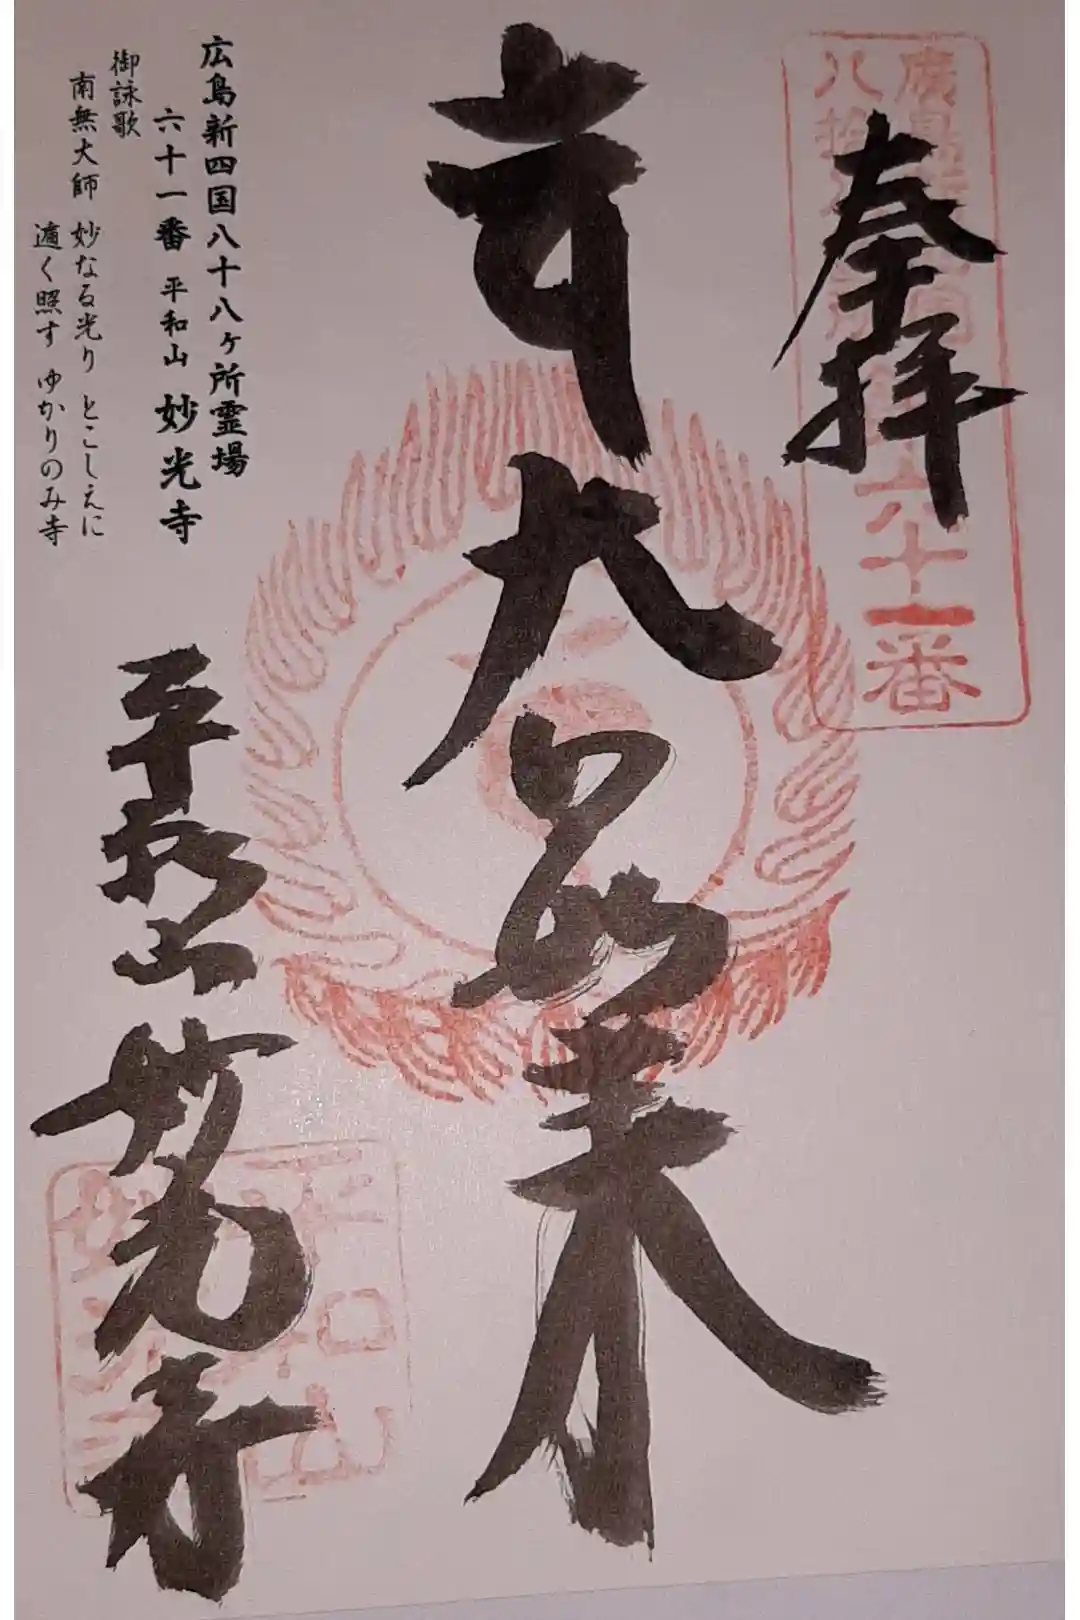 奉拝
六十一番
大日如来
広島新四国八十八ヶ所霊場
六十一番 平和山 妙光寺
御詠歌
南無大師 妙なる光り とこしえに
遍く照す ゆかりのみ寺
平和山
妙光寺